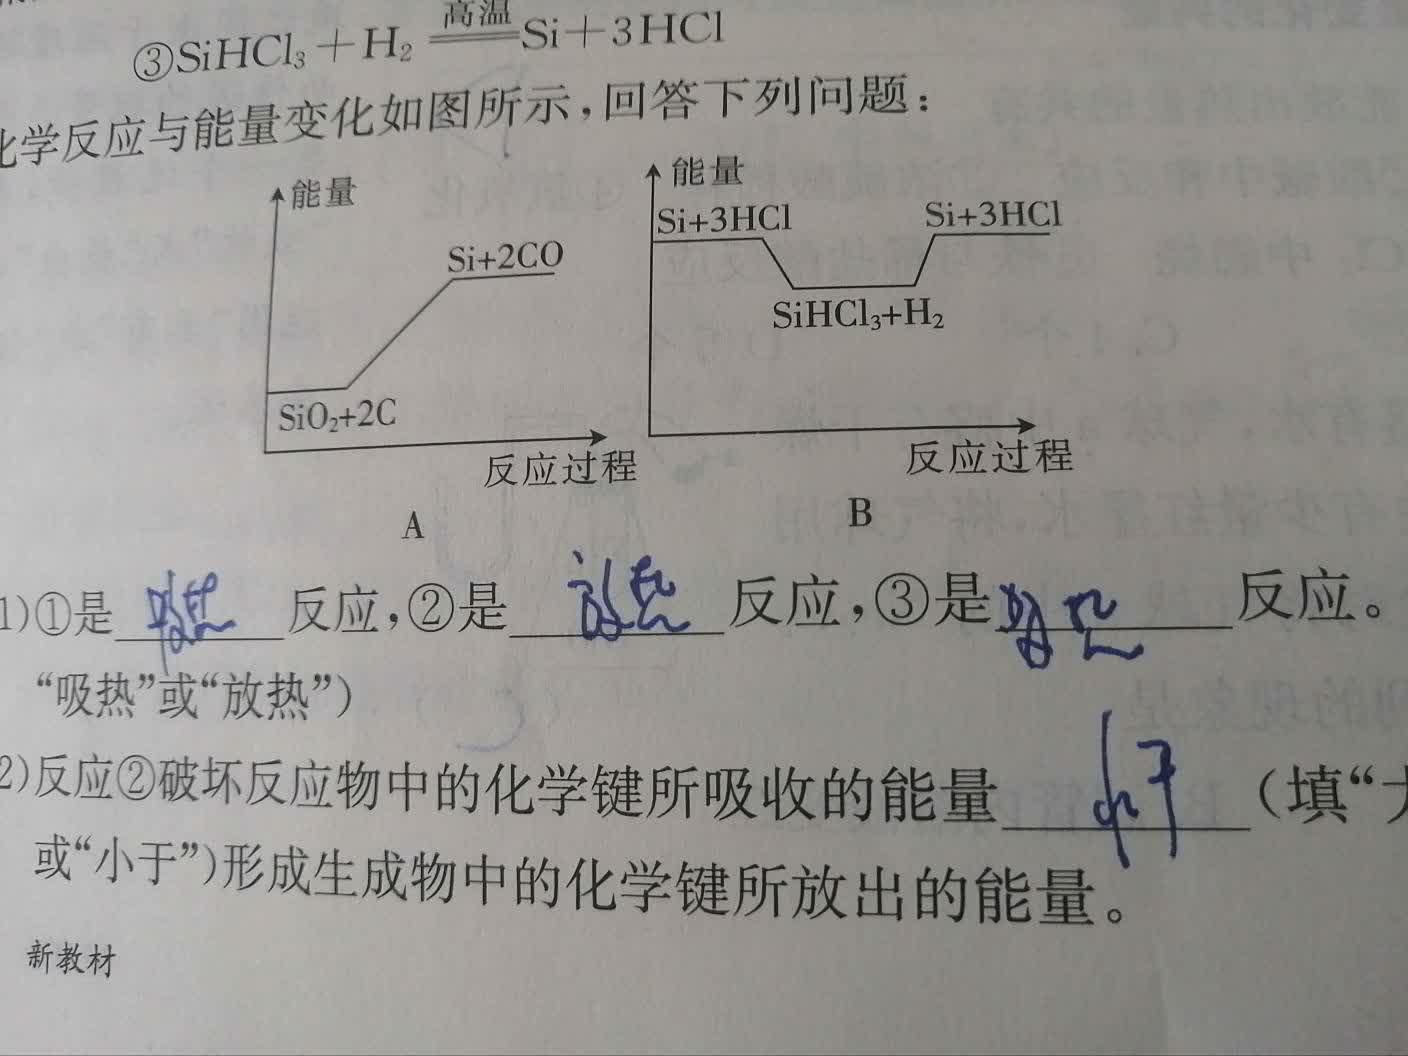 ③SiHCl₃+H₂ 高温 Si+3HCl
化学反应与能量变化如图所示,回答下列问题:
能量
能量
Si+3HCl
Si+3HCl
Si+2CO
SiHCl₃+H₂
SiO₂+2C
反应过程
反应过程
A
B
1)①是 吸热 反应,②是 放热 反应,③是 吸热 反应。
“吸热”或“放热”)
2)反应②破坏反应物中的化学键所吸收的能量 小于 (填“大
或“小于”)形成生成物中的化学键所放出的能量。
新教材